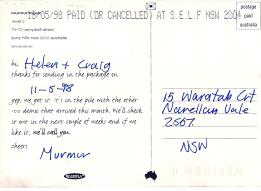 18/05/98 PAID (OR CANCELLED) AT S.E.L.F NSW 200
level 2
70-72 campbell street
surry hills nsw 2010 australia
postage
paid
australia
Hi Helen + Craig
thanks for sending in the package on
11-5-98
yep, we got it. it's in the pile with the other
demos that arrived this month. We'll check
it out in the next couple of weeks and if we
like it, we'll call you
cheers
Murmur
15 Waratah Crt
Narellan Vale
2567
NSW